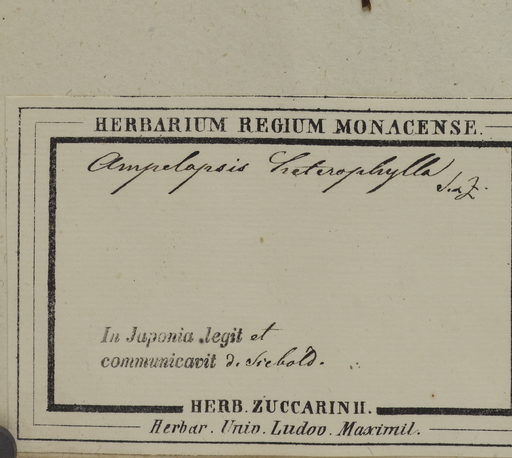 HERBARIUM REGIUM MONACENSE.
Ampelopsis heterophylla S. & Z.
In Japonia legit et
communicavit d. Siebold.
HERB. ZUCCARINII.
Herbar. Univ. Ludov. Maximil.